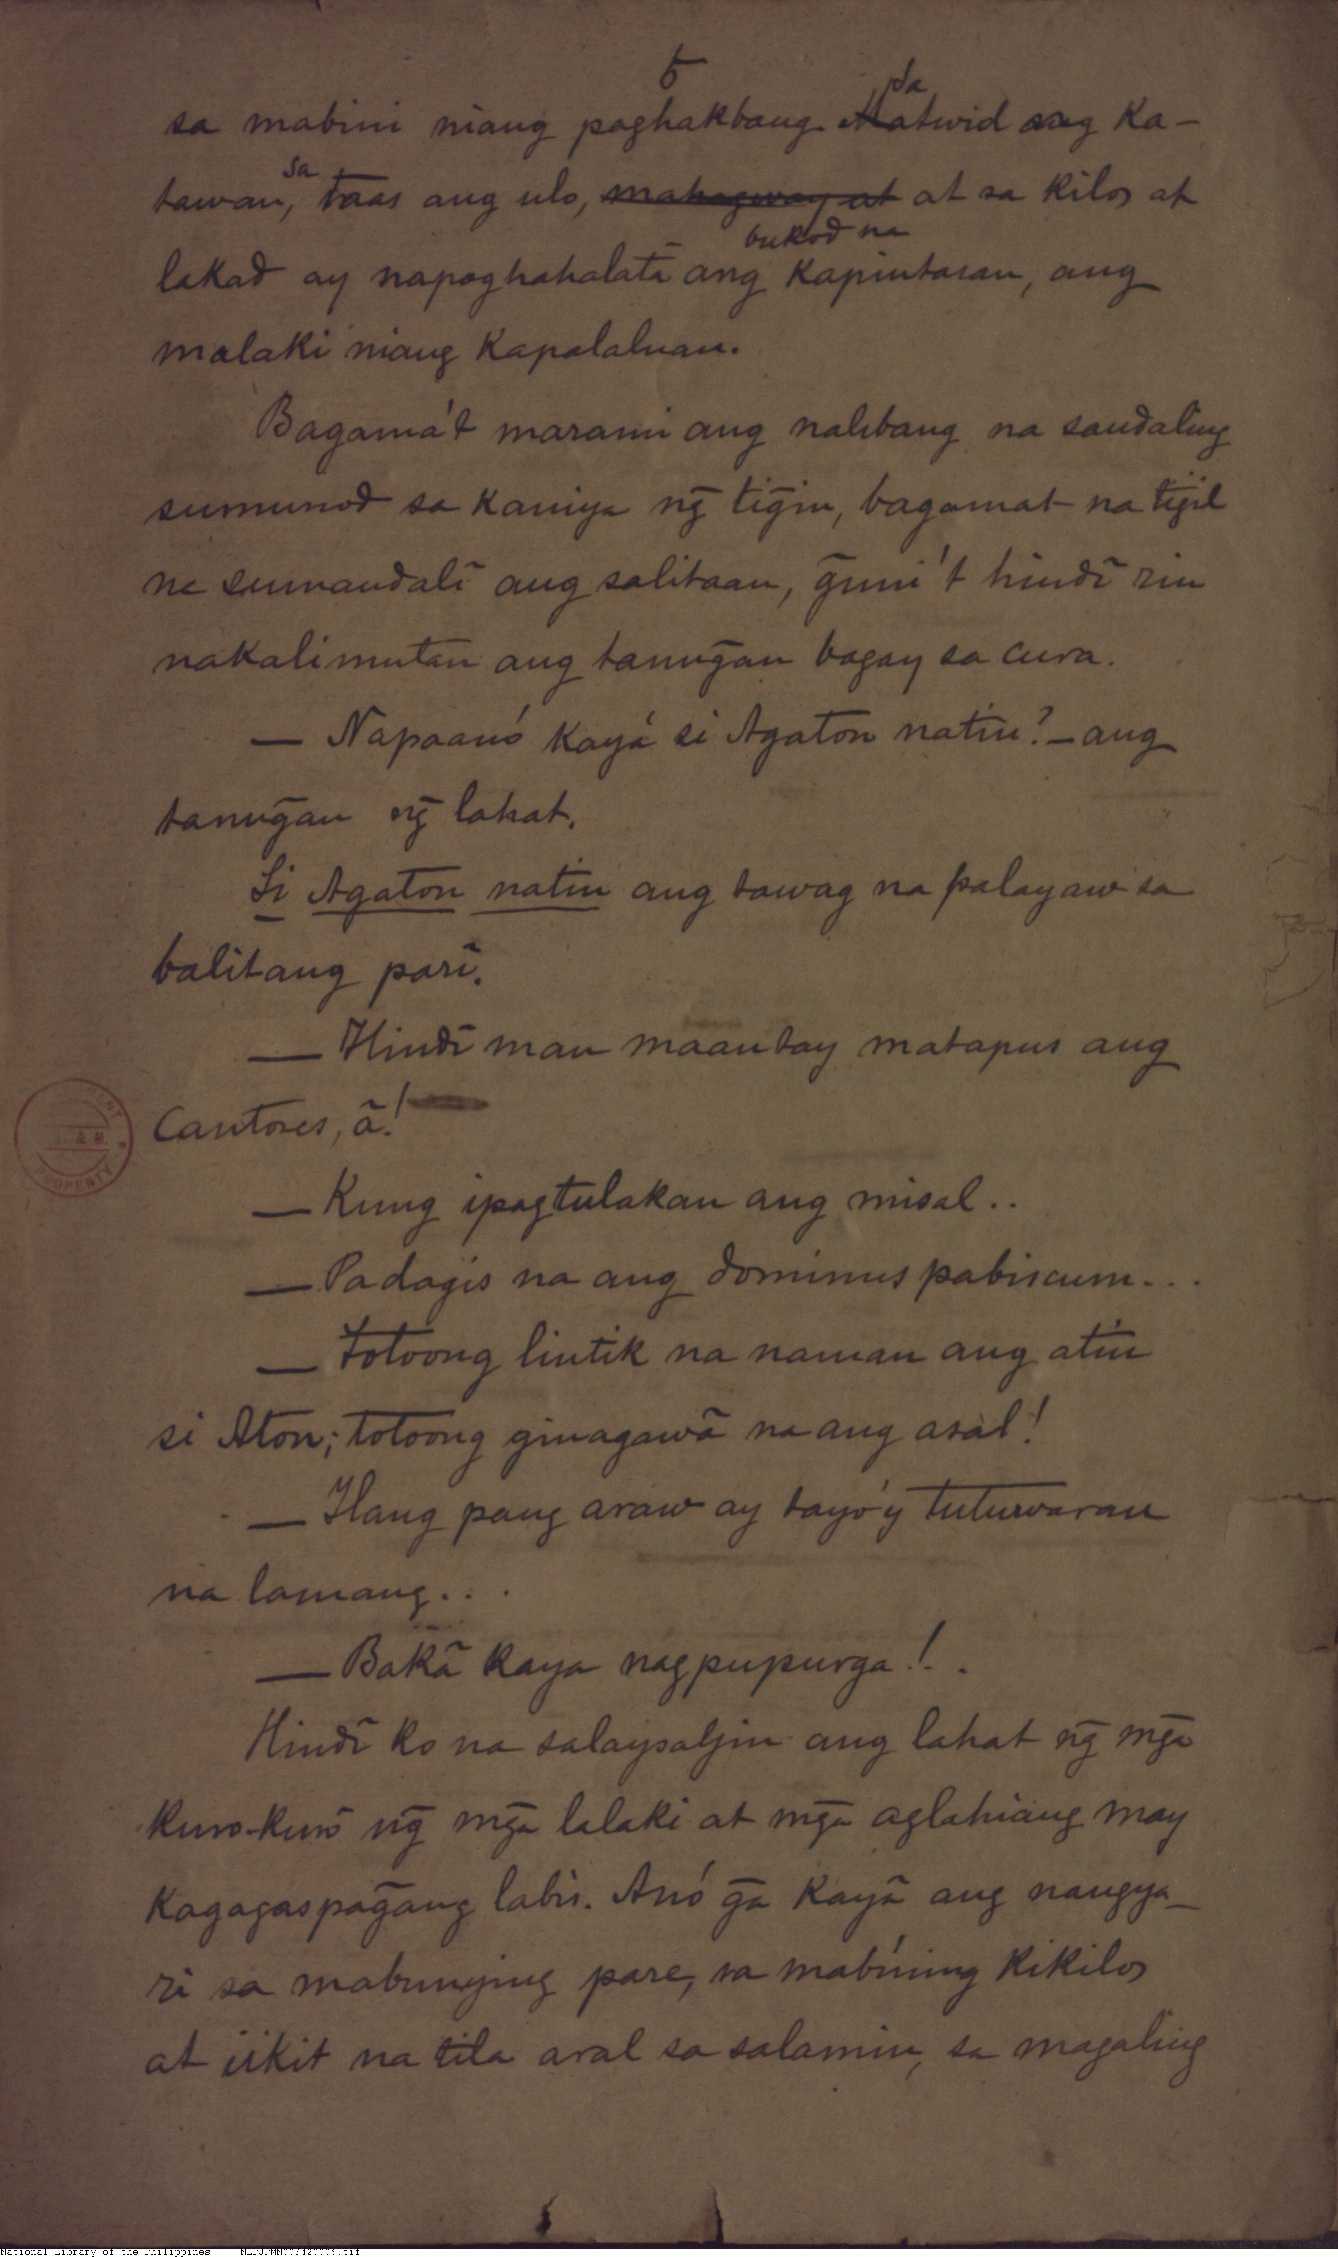 5
sa mabini niang paghakbang. Matwid ang ka-
sa
tawan, taas ang ulo, mahagway at at sa kilos at
bukod na
lakad ay napaghahalatã ang kapintasan, ang
malaki niang kapalaluan.
Bagama't marami ang nalibang na sandaling
sumunod sa kaniya ng̃ tig̃in, bagamat na tigil
na sumandalĩ ang salitaan, g̃uni't hindĩ rin
nakalimutan ang tanung̃an bagay sa cura.
— Napaanó kayá si Agaton natin? — ang
tanung̃an ng̃ lahat.
Si Agaton natin ang tawag na palayaw sa
balitang parĩ.
— Hindĩ man maantay matapus ang
Cantores, ã!
— Kung ipagtulakan ang misal..
— Padagis na ang dominus pabiscum...
— Totoong lintik na naman ang atin
si Aton; totoong ginagawã na ang asal!
— Ilang pang araw ay tayo'y tutuwaran
na lamang...
— Bakã kaya nagpupurga!..
Hindĩ ko na salaysaljin ang lahat ng̃ mg̃a
kuro-kurõ ng̃ mg̃a lalaki at mg̃a aglahiang may
kagagaspag̃ang labis. Anó g̃a kayã ang nangya-
ri sa mabunying pare, sa mabíning kikilos
at iikit na tila aral sa salamin, sa magaling
PROPERTY
National Library of the Philippines